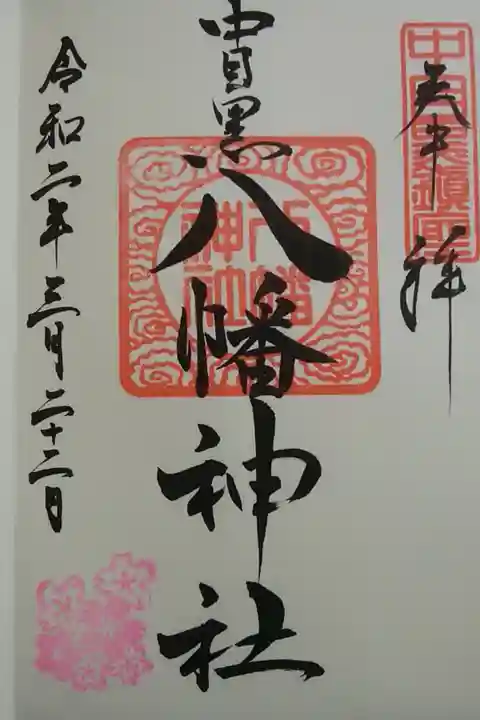 奉拝
中目黒鎮座
中目黒
八幡神社
八幡
神社
令和二年三月二十二日